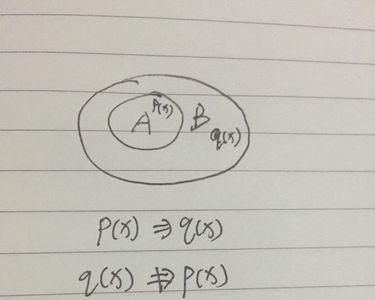 A P(x) B q(x)
p(x) ⇒ q(x)
q(x) ⇏ p(x)